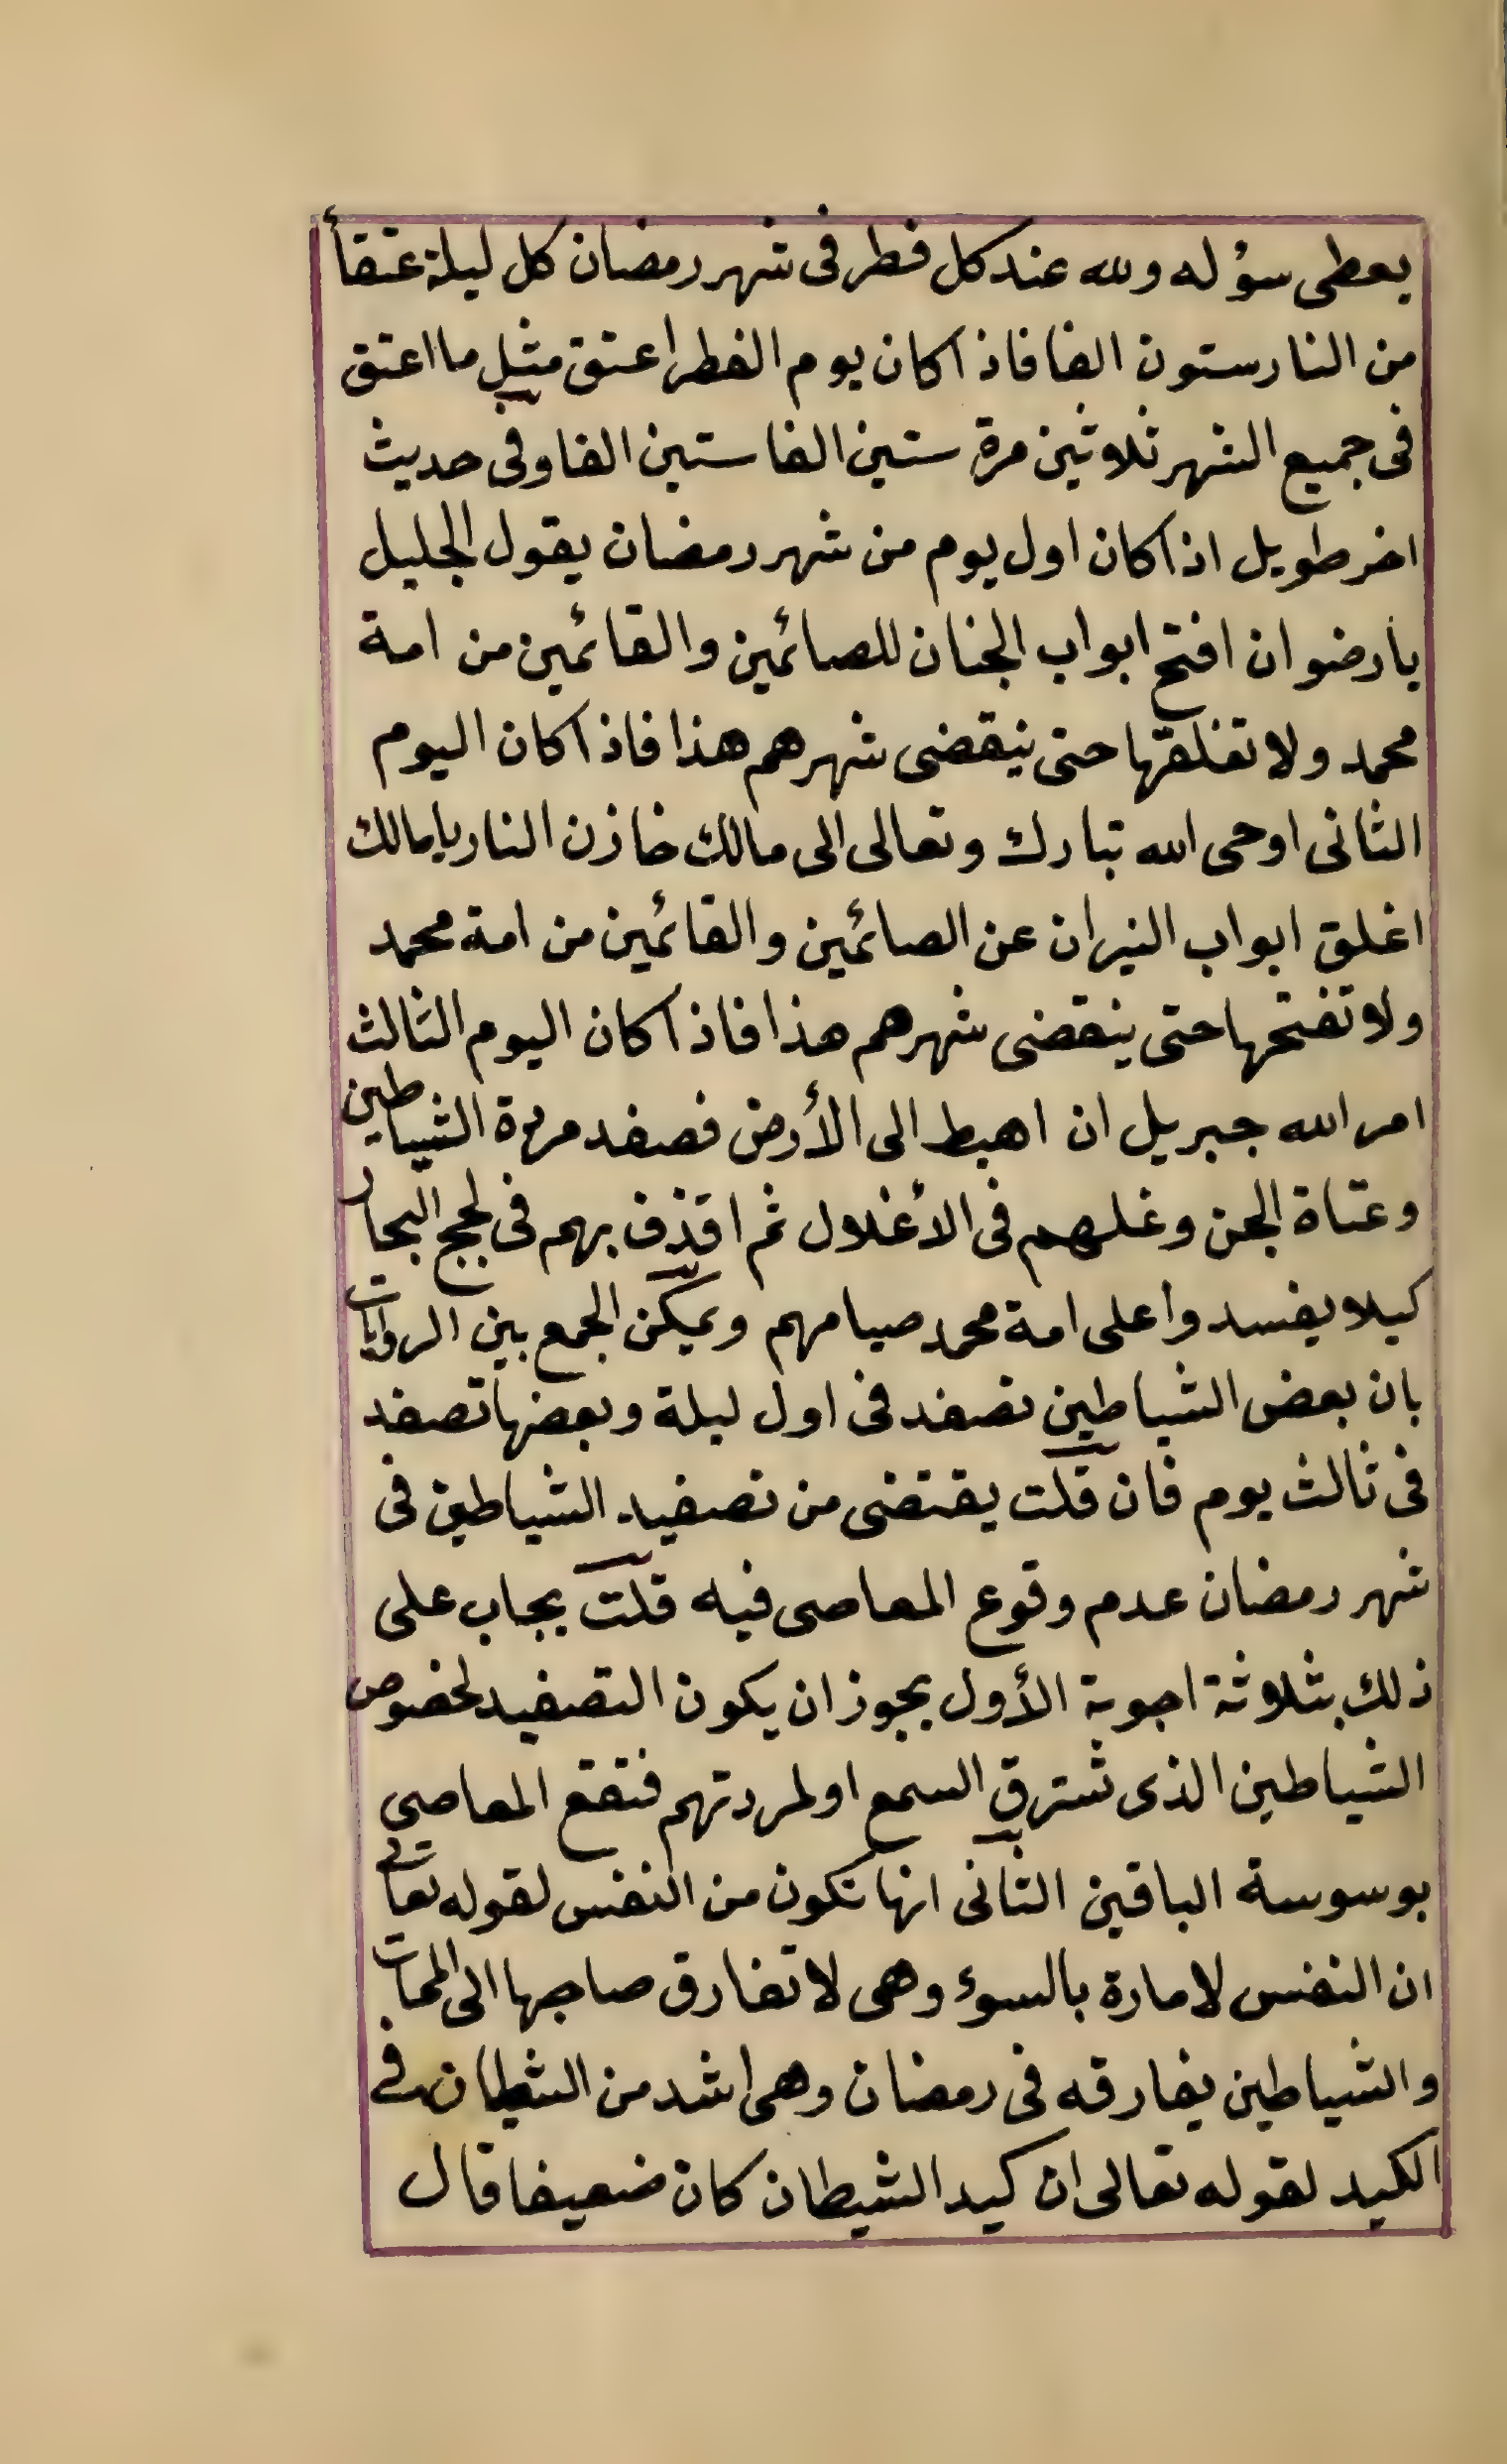 يعطى سؤله ولله عند كل فطر فى شهر رمضان كل ليلة عتقأ
من النار ستون الفا فاذا كان يوم الفطر اعتق مثل ما اعتق
فى جميع الشهر ثلاثين مرة ستين الفا ستين الفا وفى حديث
اخر طويل اذا كان اول يوم من شهر رمضان يقول الجليل
يا رضوان افتح ابواب الجنان للصائمين والقائمين من امة
محمد ولا تغلقها حتى ينقضى شهرهم هذا فاذا كان اليوم
الثانى اوحى الله تبارك وتعالى الى مالك خازن النار يا مالك
اغلق ابواب النيران عن الصائمين والقائمين من امة محمد
ولا تفتحها حتى ينقضى شهرهم هذا فاذا كان اليوم الثالث
امر الله جبريل ان اهبط الى الأرض فصفد مردة الشياطين
وعتاة الجن وغلهم فى الأغلال ثم اقذف بهم فى لجج البحار
كيلا يفسدوا على امة محمد صيامهم ويمكن الجمع بين الروايات
بان بعض الشياطين تصفد فى اول ليلة وبعضها تصفد
فى ثالث يوم فان قلت يقتضى من تصفيد الشياطين فى
شهر رمضان عدم وقوع المعاصى فيه قلت يجاب على
ذلك بثلاثة اجوبة الأول يجوز ان يكون التصفيد لخصوص
الشياطين الذى تسترق السمع او لمردتهم فتقع المعاصى
بوسوسة الباقين الثانى انها تكون من النفس لقوله تعالى
ان النفس لامارة بالسوء وهى لا تفارق صاحبها الى الممات
والشياطين يفارقه فى رمضان وهى اشد من الشيطان فى
الكيد لقوله تعالى ان كيد الشيطان كان ضعيفا قال